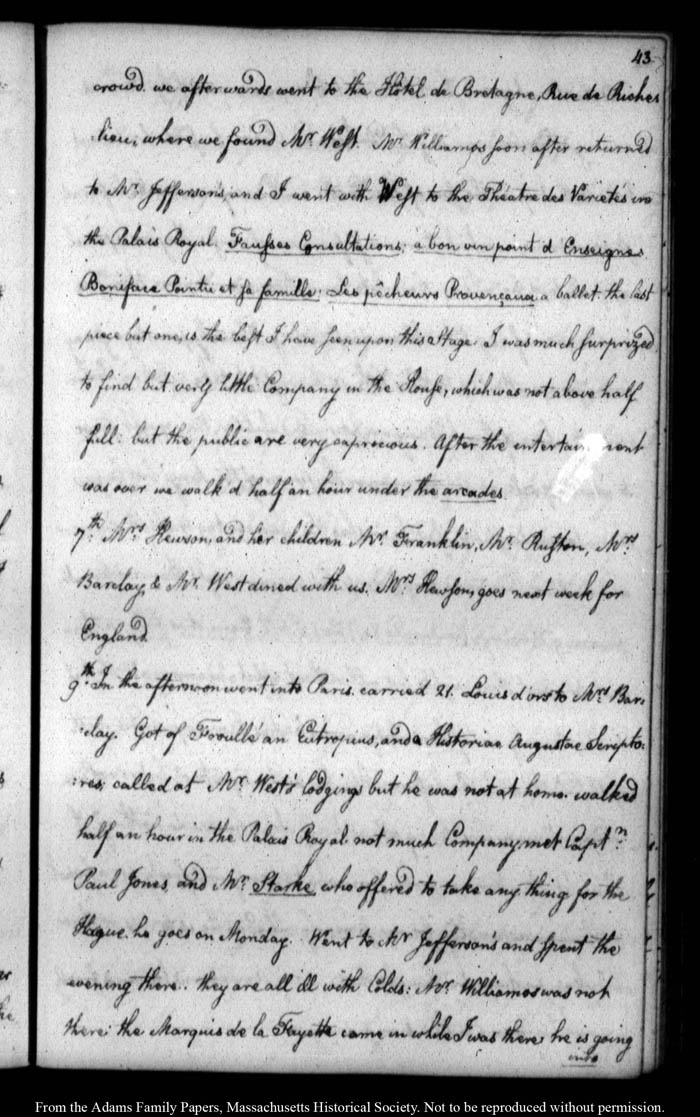 43
crowd. we afterwards went to the Hôtel de Bretagne, Rue de Riche=
lieu, where we found Mr. West. Mr. Williamos soon after returned
to Mr. Jefferson's, and I went with West to the Théatre des Varietés in
the Palais Royal. Fausses Consultations; a bon vin point d'Enseigne
Boniface Pointu et sa famille; Les pêcheurs Provençaux a ballet. the last
piece but one, is the best I have seen upon this Stage. I was much surprized
to find but very little Company in the House, which was not above half
full: but the public are very capricious. After the entertainment
was over we walk'd half an hour under the arcades.
7th. Mrs. Hewson, and her children Mr. Franklin, Mr. Ruston, Mrs.
Barclay, & Mr. West dined with us. Mrs. Hewson, goes next week for
England.
9th. In the afternoon went into Paris. carried 21. Louis d'ors to Mrs. Bar=
:clay. Got of Froullé an Eutropius, and a Historiae Augustae Scripto:
:res; called at Mr. West's lodgings but he was not at home. walked
half an hour in the Palais Royal. not much Company. met Captn.
Paul Jones, and Mr. Starke, who offered to take any thing for the
Hague. he goes on Monday. Went to Mr Jefferson's and spent the
evening there. they are all ill with Colds: Mr. Williamos was not
there: the Marquis de la Fayette came in while I was there: he is going
into
From the Adams Family Papers, Massachusetts Historical Society. Not to be reproduced without permission.